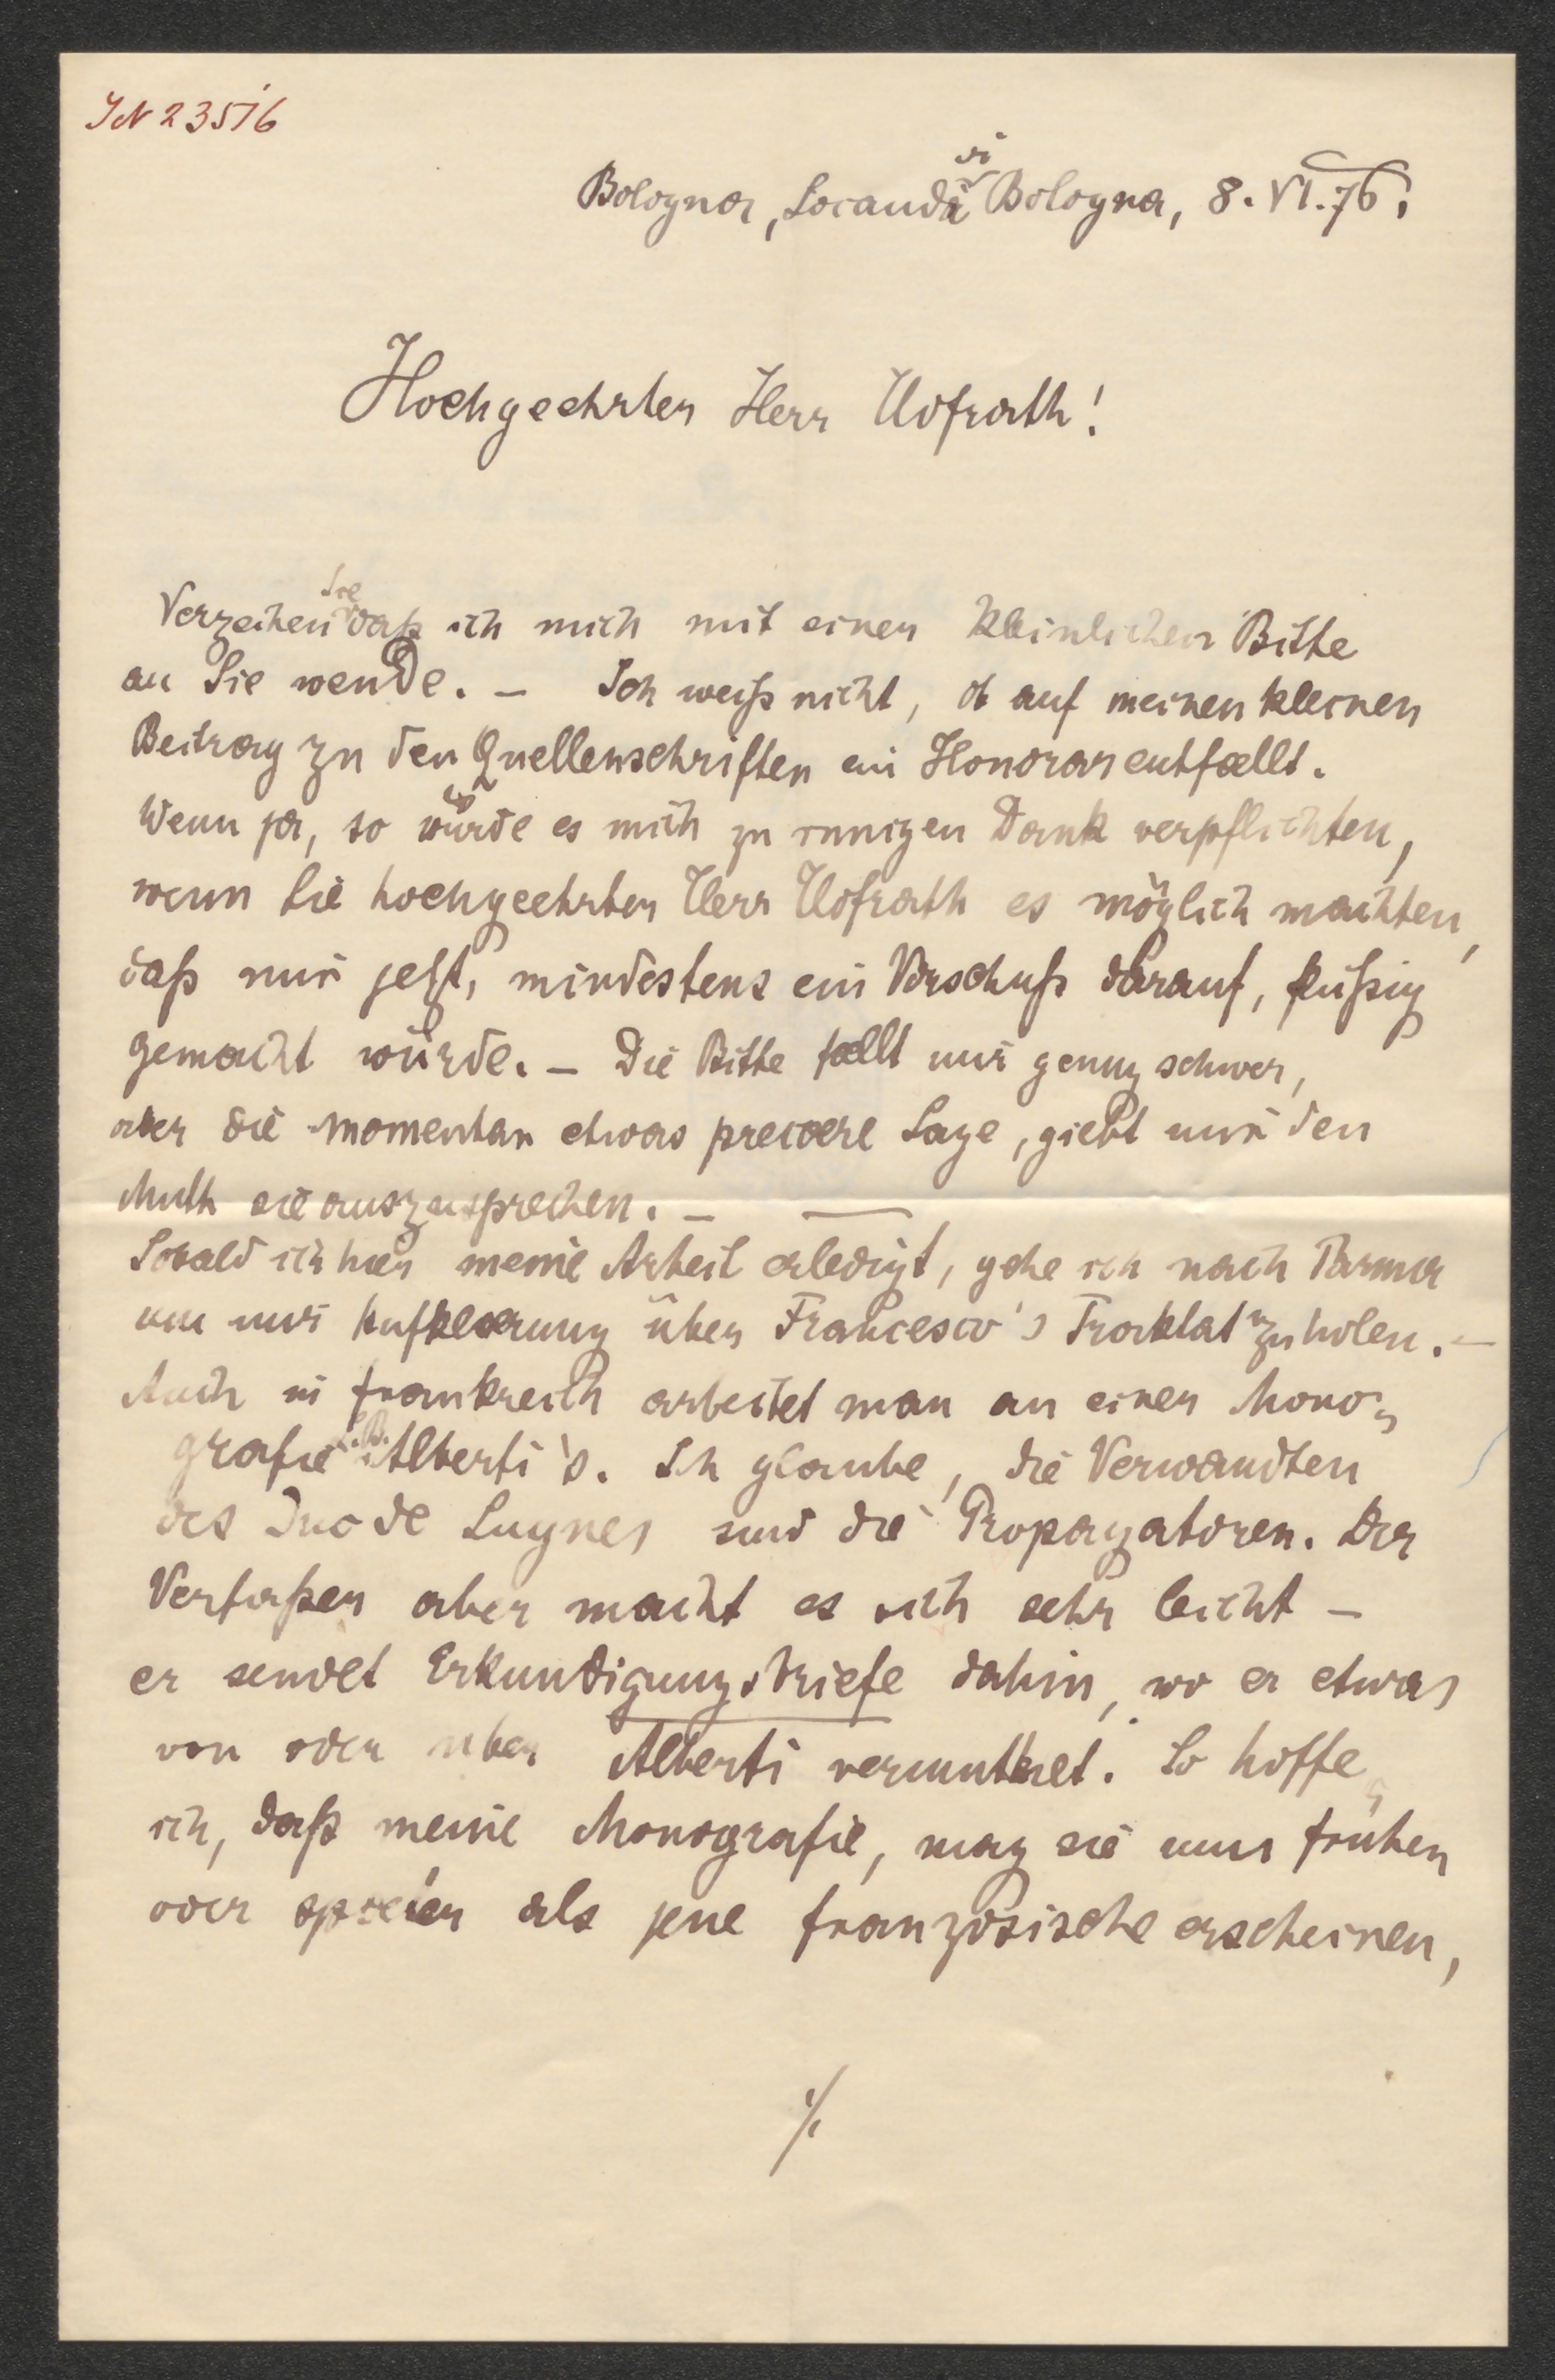 IN 23516
Bologna, Locanda di Bologna, 8. VI. 76.
Hochgeehrter Herr Hofrath!
Verzeihen Sie daß ich mich mit einer kleinlichen Bitte
an Sie wende. – Ich weiß nicht, ob auf meinen kleinen
Beitrag zu den Quellenschriften ein Honorar entfaellt.
Wenn ja, so würde es mich zu innigen Dank verpflichten,
wenn Sie hochgeehrter Herr Hofrath es möglich machten,
daß mir jetzt, mindestens ein Vorschuß darauf, flüßig
gemacht würde. – Die Bitte faellt mir genug schwer,
aber die momentan etwas precaere Lage, giebt mir den
Muth sie auszusprechen. –
Sobald ich hier meine Arbeit erledigt, gehe ich nach Parma
um mir Aufklaerung über Francesco's Traktat zu holen. –
Auch in Frankreich arbeitet man an einer Mono-
grafie L. B. Alberti's. Ich glaube, die Verwandten
des Duc de Luynes sind die Propagatoren. Der
Verfaßer aber macht es sich sehr leicht –
er sendet Erkundigungsbriefe dahin, wo er etwas
von oder über Alberti vermuthet. So hoffe
ich, daß meine Monografie, mag sie nun früher
oder spaeter als jene französische erscheinen,
./.